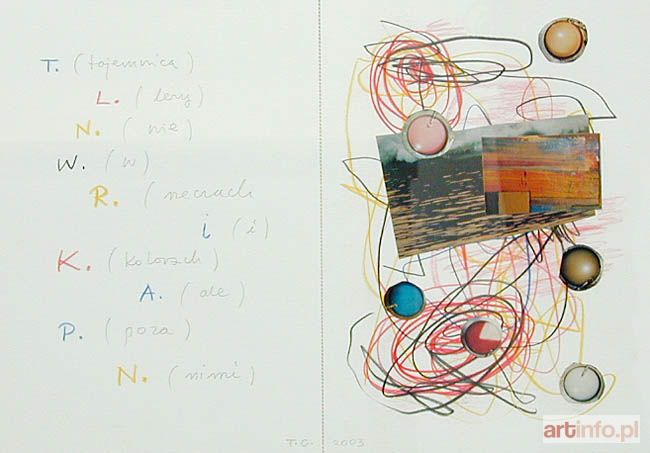 T. (tajemnica)
L. (leży)
N. (nie)
W. (w)
R. (rzeczach
i (i)
K. (kolorach)
A. (ale)
P. (poza)
N. (nimi)
T.C. 2003
artinfo.pl